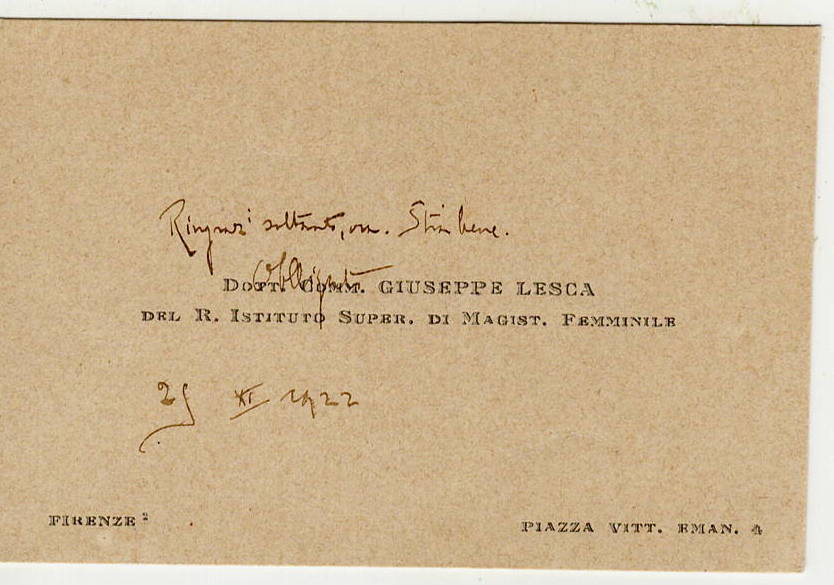 Ringrazi soltanto, ora. Stia bene.
Obbligato
Dott. Comm. GIUSEPPE LESCA
DEL R. ISTITUTO SUPER. DI MAGIST. FEMMINILE
XI 1922
FIRENZE 2
PIAZZA VITT. EMAN. 4